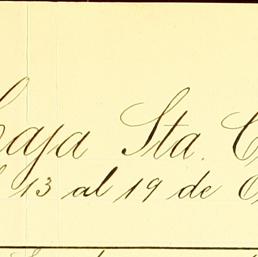 Caja Sta. C
13 al 19 de